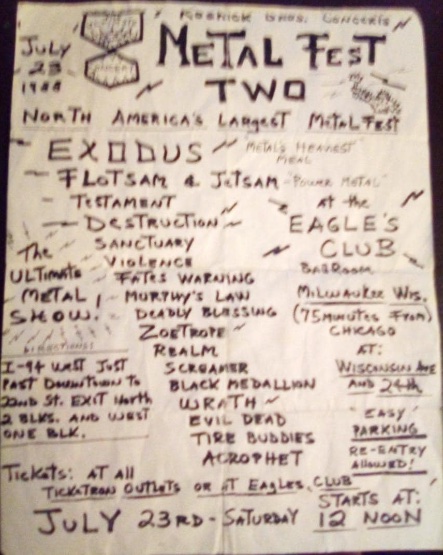 Koshick Bros. Concerts
July
23
1988
Metal Fest
Two
North America's Largest Metal Fest
Exodus
Metal's Heaviest
Meal
Flotsam & Jetsam - "Power Metal"
Testament
Destruction
Sanctuary
Violence
Fates Warning
Murphy's Law
Deadly Blessing
Zoetrope
Realm
Screamer
Black Medallion
Wrath
Evil Dead
Tire Buddies
Acrophet
at the
Eagle's
Club
Ballroom
Milwaukee Wis.
(75 minutes from)
Chicago
At:
Wisconsin Ave
and 24th
"Easy"
Parking
Re-Entry
Allowed!
The
Ultimate
Metal
Show.
Directions:
I-94 West Just
Past Downtown to
22nd St. Exit North
2 Blks. and West
One Blk.
Tickets: At all
Ticketron Outlets or at Eagles Club
Starts at:
July 23rd - Saturday 12 Noon